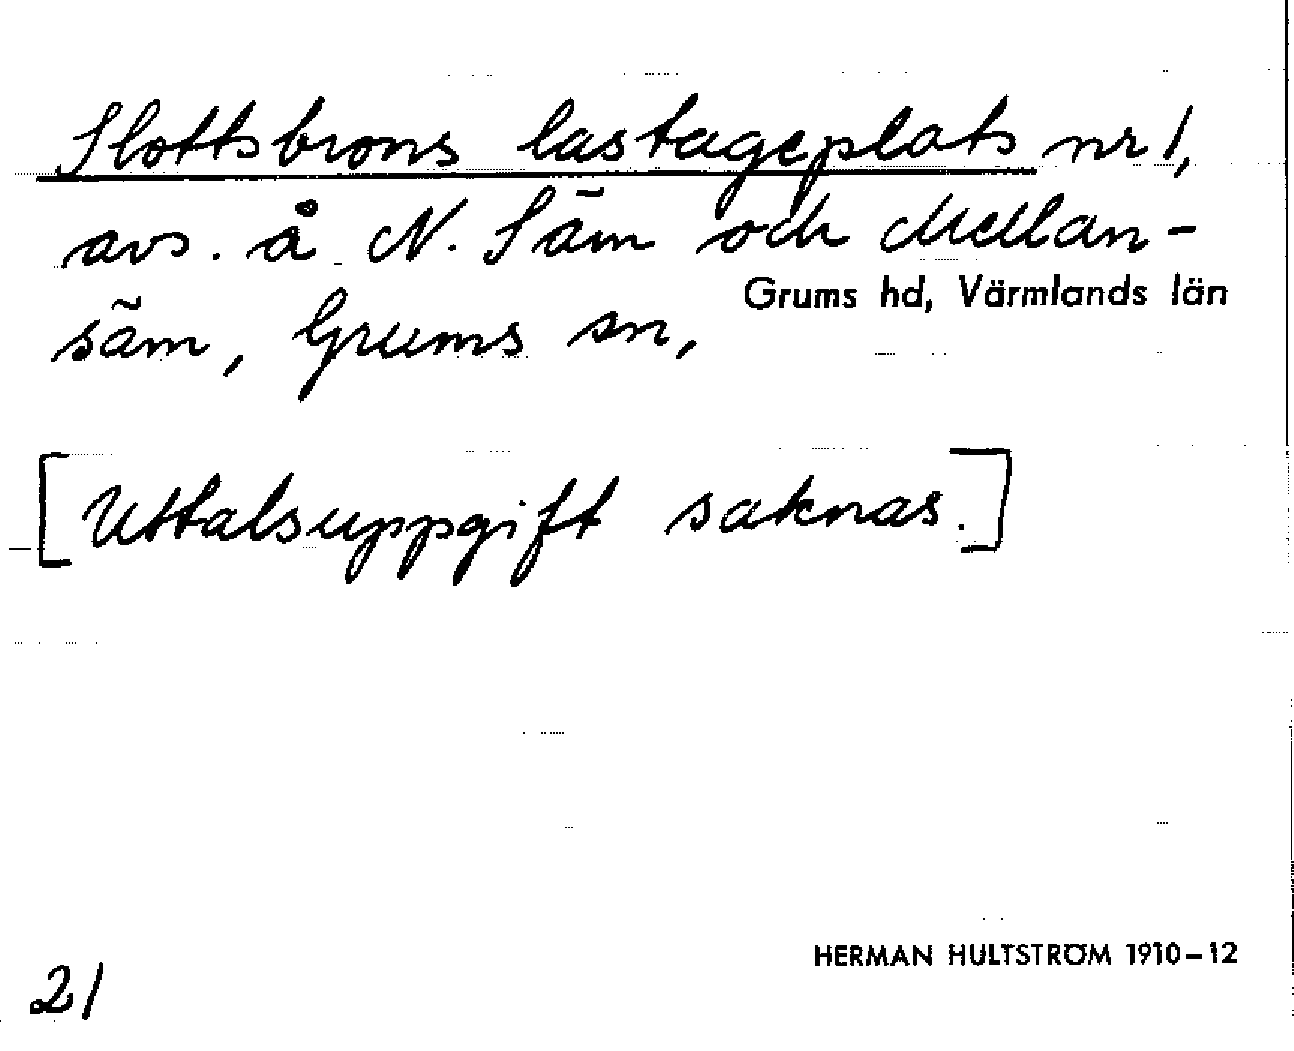 Slottsbrons lastageplats nr 1,
avs. å N. Säm och Mellan-
säm, Grums sn,
Grums hd, Värmlands län
[Uttalsuppgift saknas.]
HERMAN HULTSTRÖM 1910–12
21